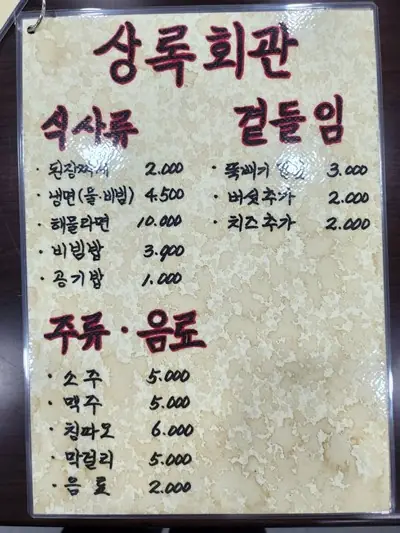 상록회관
식사류
· 된장찌개 2.000
· 냉면(물·비빔) 4.500
· 해물라면 10.000
· 비빔밥 3.900
· 공기밥 1.000
곁들임
· 뚝배기 3.000
· 버섯추가 2.000
· 치즈추가 2.000
주류·음료
· 소주 5.000
· 맥주 5.000
· 칭따오 6.000
· 막걸리 5.000
· 음료 2.000